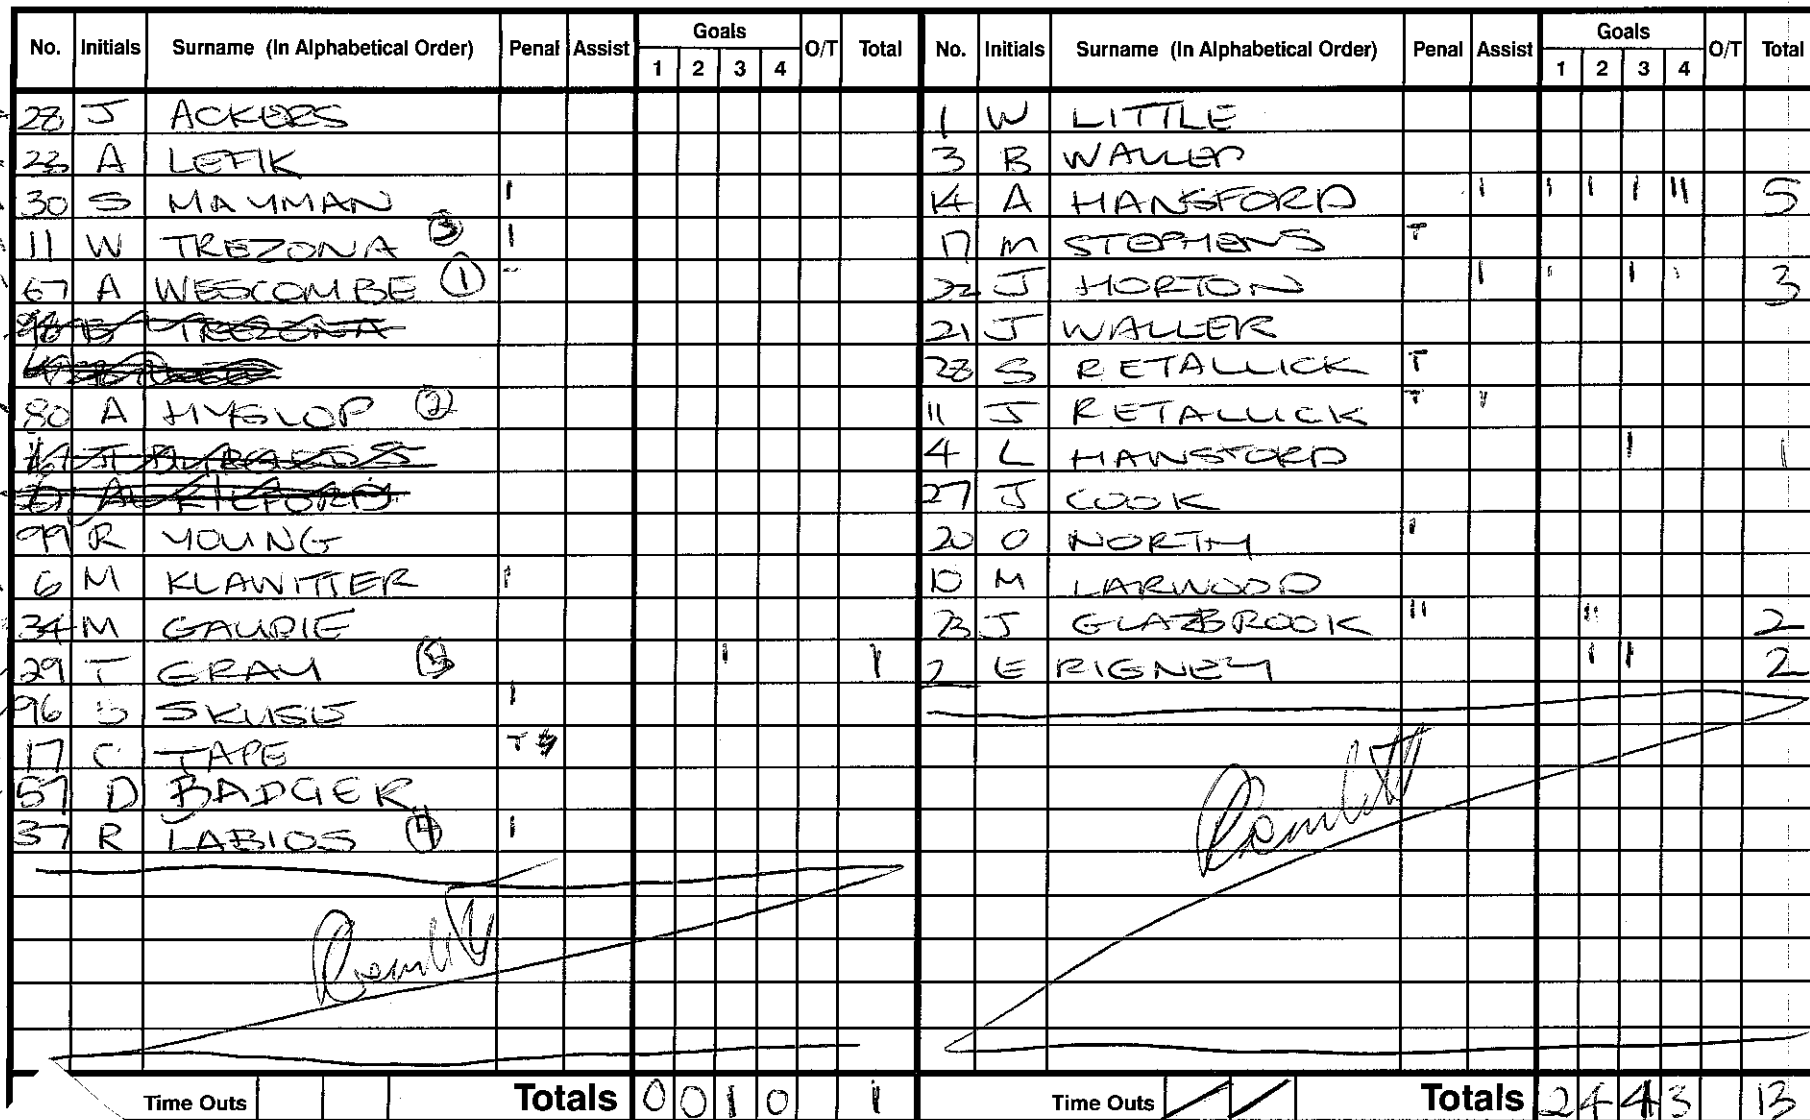 No. Initials Surname (In Alphabetical Order) Penal Assist Goals 1 2 3 4 O/T Total
28 J ACKERS
23 A LEFIK
30 S MAYMAN I
11 W TREZONA ③ I
67 A WESCOMBE ①
98 TREZONA
80 A HYSLOP ②
99 R YOUNG
6 M KLAWITTER I
34 M GAUDIE
29 T GRAY ⑤ I I
96 S SKUSE I
17 C TAPE T
57 D BADGER
37 R LABIOS ④ I
Time Outs Totals 0 0 1 0 1
No. Initials Surname (In Alphabetical Order) Penal Assist Goals 1 2 3 4 O/T Total
1 W LITTLE
3 B WALLER
14 A HANSFORD I I I I II 5
17 M STEPHENS T
22 J HORTON I I I I 3
21 J WALLER
28 S RETALLICK T
11 J RETALLICK T I
4 L HANSFORD I 1
27 J COOK
20 O NORTH I
10 M LARWOOD
23 J GLAZBROOK II II 2
2 E RIGNEY I I 2
Time Outs / / Totals 2 4 4 3 13